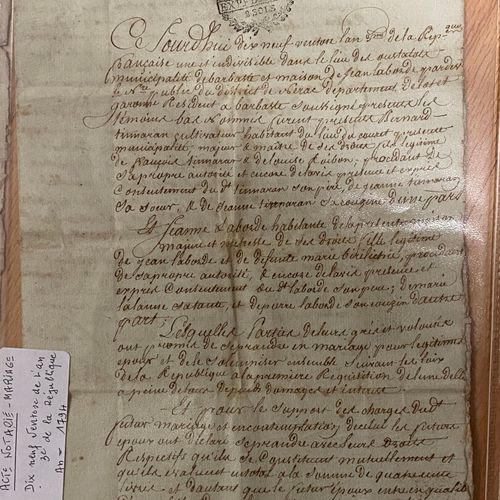 2 SOLS
Ce Jourdhui dix neuf ventose lan de la Rep que
francaise une et indivisible dans le lieu des oustalats
municipalité de barbaste et maison de Jean laborde pardev
le No re public du district de Nerac departement de lot et
garonne Resident a barbaste Soussigné presens les
témoins bas nommés furent presents Bernard
cultivateur habitant du lieu du presente
municipalité majeur & maitre de ses droits fils legitime
de françois et de louise procedant de
sa propre autorité et encore de lavis presence et exprés
Consentement du dt son pere, de jeanne
sa soeur, & de jeanne sa cousine dune part
Et Jeanne laborde habitante de la presente
majeure metresse de ses droits fille legitime
de jean laborde et de defunte marie procedant
de sa propre autorité, & encore de lavis presence et
exprés Consentement du dt laborde son pere, de marie
sa tante, et de pierre laborde son cousin dautre
part
Lesquelles Parties de leurs grés et volontés
ont promis de se prendre en mariage pour legitimes
epoux et de le solemniser ensemble Suivant les lois
de la Republique a la premiere Requisition de lune delles
a peine de tous depens domages et interets
Et pour le Support des charges du dt
futur mariage et en contemplation dicelui les futurs
epoux ont declaré se prendre avec leurs Droits
Respectifs quils se Constituent mutuellement et
quils evaluent in total a la somme de quatre cens
livres et dautant que le futur epoux entre en qualité
ACTE NOTARIÉ - MARIAGE
Dix neuf Ventose de l'an
2e de la République
An - 1794